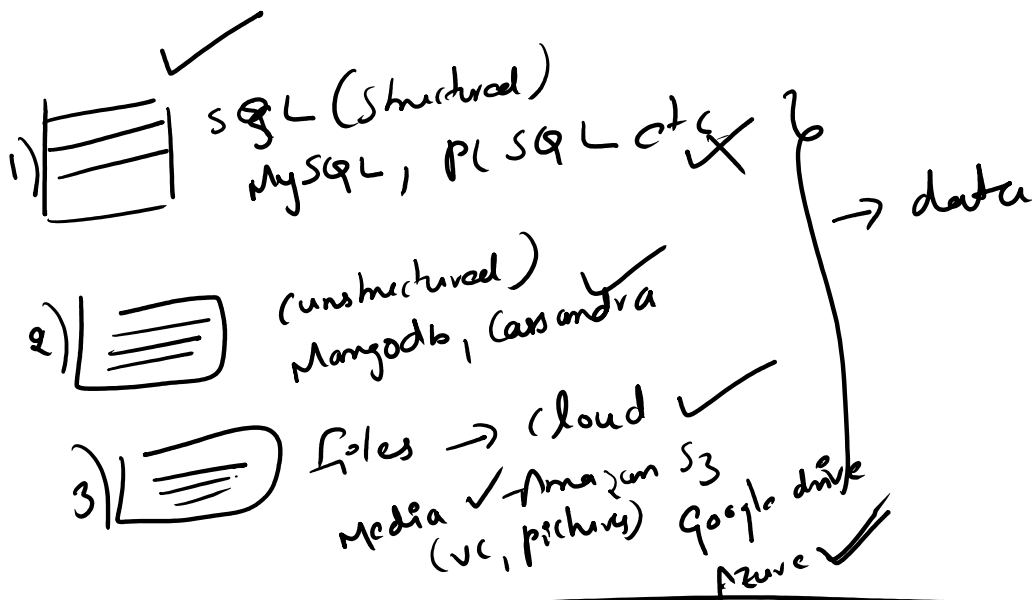 1) SQL (Structured)
MySQL, PL SQL etc
→ data
2) (unstructured)
Mangodb, Cassandra
3) files → cloud
Media Amazon S3
(vc, pictures) Google drive
Azure